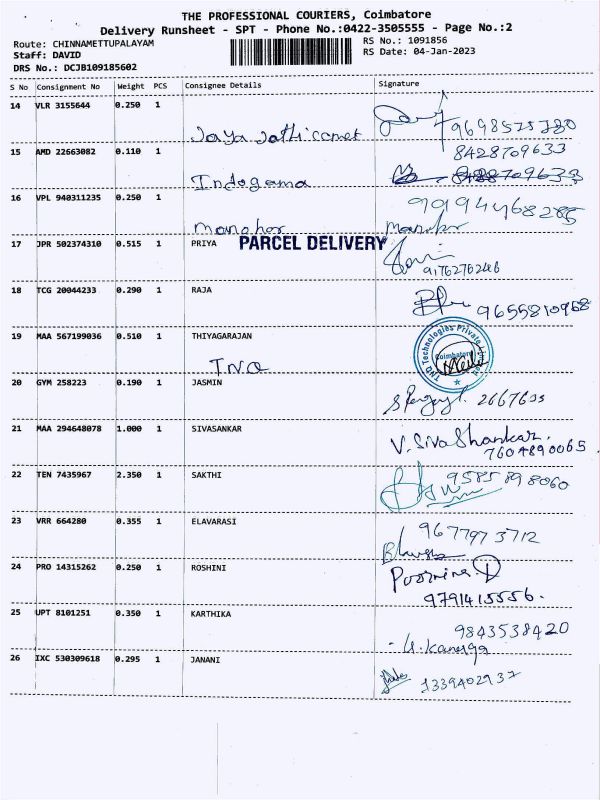 THE PROFESSIONAL COURIERS, Coimbatore
Delivery Runsheet - SPT - Phone No.:0422-3505555 - Page No.:2
Route: CHINNAMETTUPALAYAM RS No.: 1091856
Staff: DAVID RS Date: 04-Jan-2023
DRS No.: DCJB109185602
S No Consignment No Weight PCS Consignee Details Signature
14 VLR 3155644 0.250 1
Jaya
15 AMD 22663082 0.110 1 8428709633
Indogama 8428709633
16 VPL 940311235 0.250 1
Manohar Manohar
17 JPR 502374310 0.515 1 PRIYA PARCEL DELIVERY
9176276246
18 TCG 20044233 0.290 1 RAJA
9655810968
19 MAA 567199036 0.510 1 THIYAGARAJAN
TNQ TNQ Technologies Private Limited Coimbatore
20 GYM 258223 0.190 1 JASMIN
21 MAA 294648078 1.000 1 SIVASANKAR
V. Siva Shankar.
7604890065
22 TEN 7435967 2.350 1 SAKTHI
9585898060
23 VRR 664280 0.355 1 ELAVARASI
9677973712
24 PRO 14315262 0.250 1 ROSHINI
Poornima D
9791415556.
25 UPT 8101251 0.350 1 KARTHIKA
9843538420
26 IXC 530309618 0.295 1 JANANI